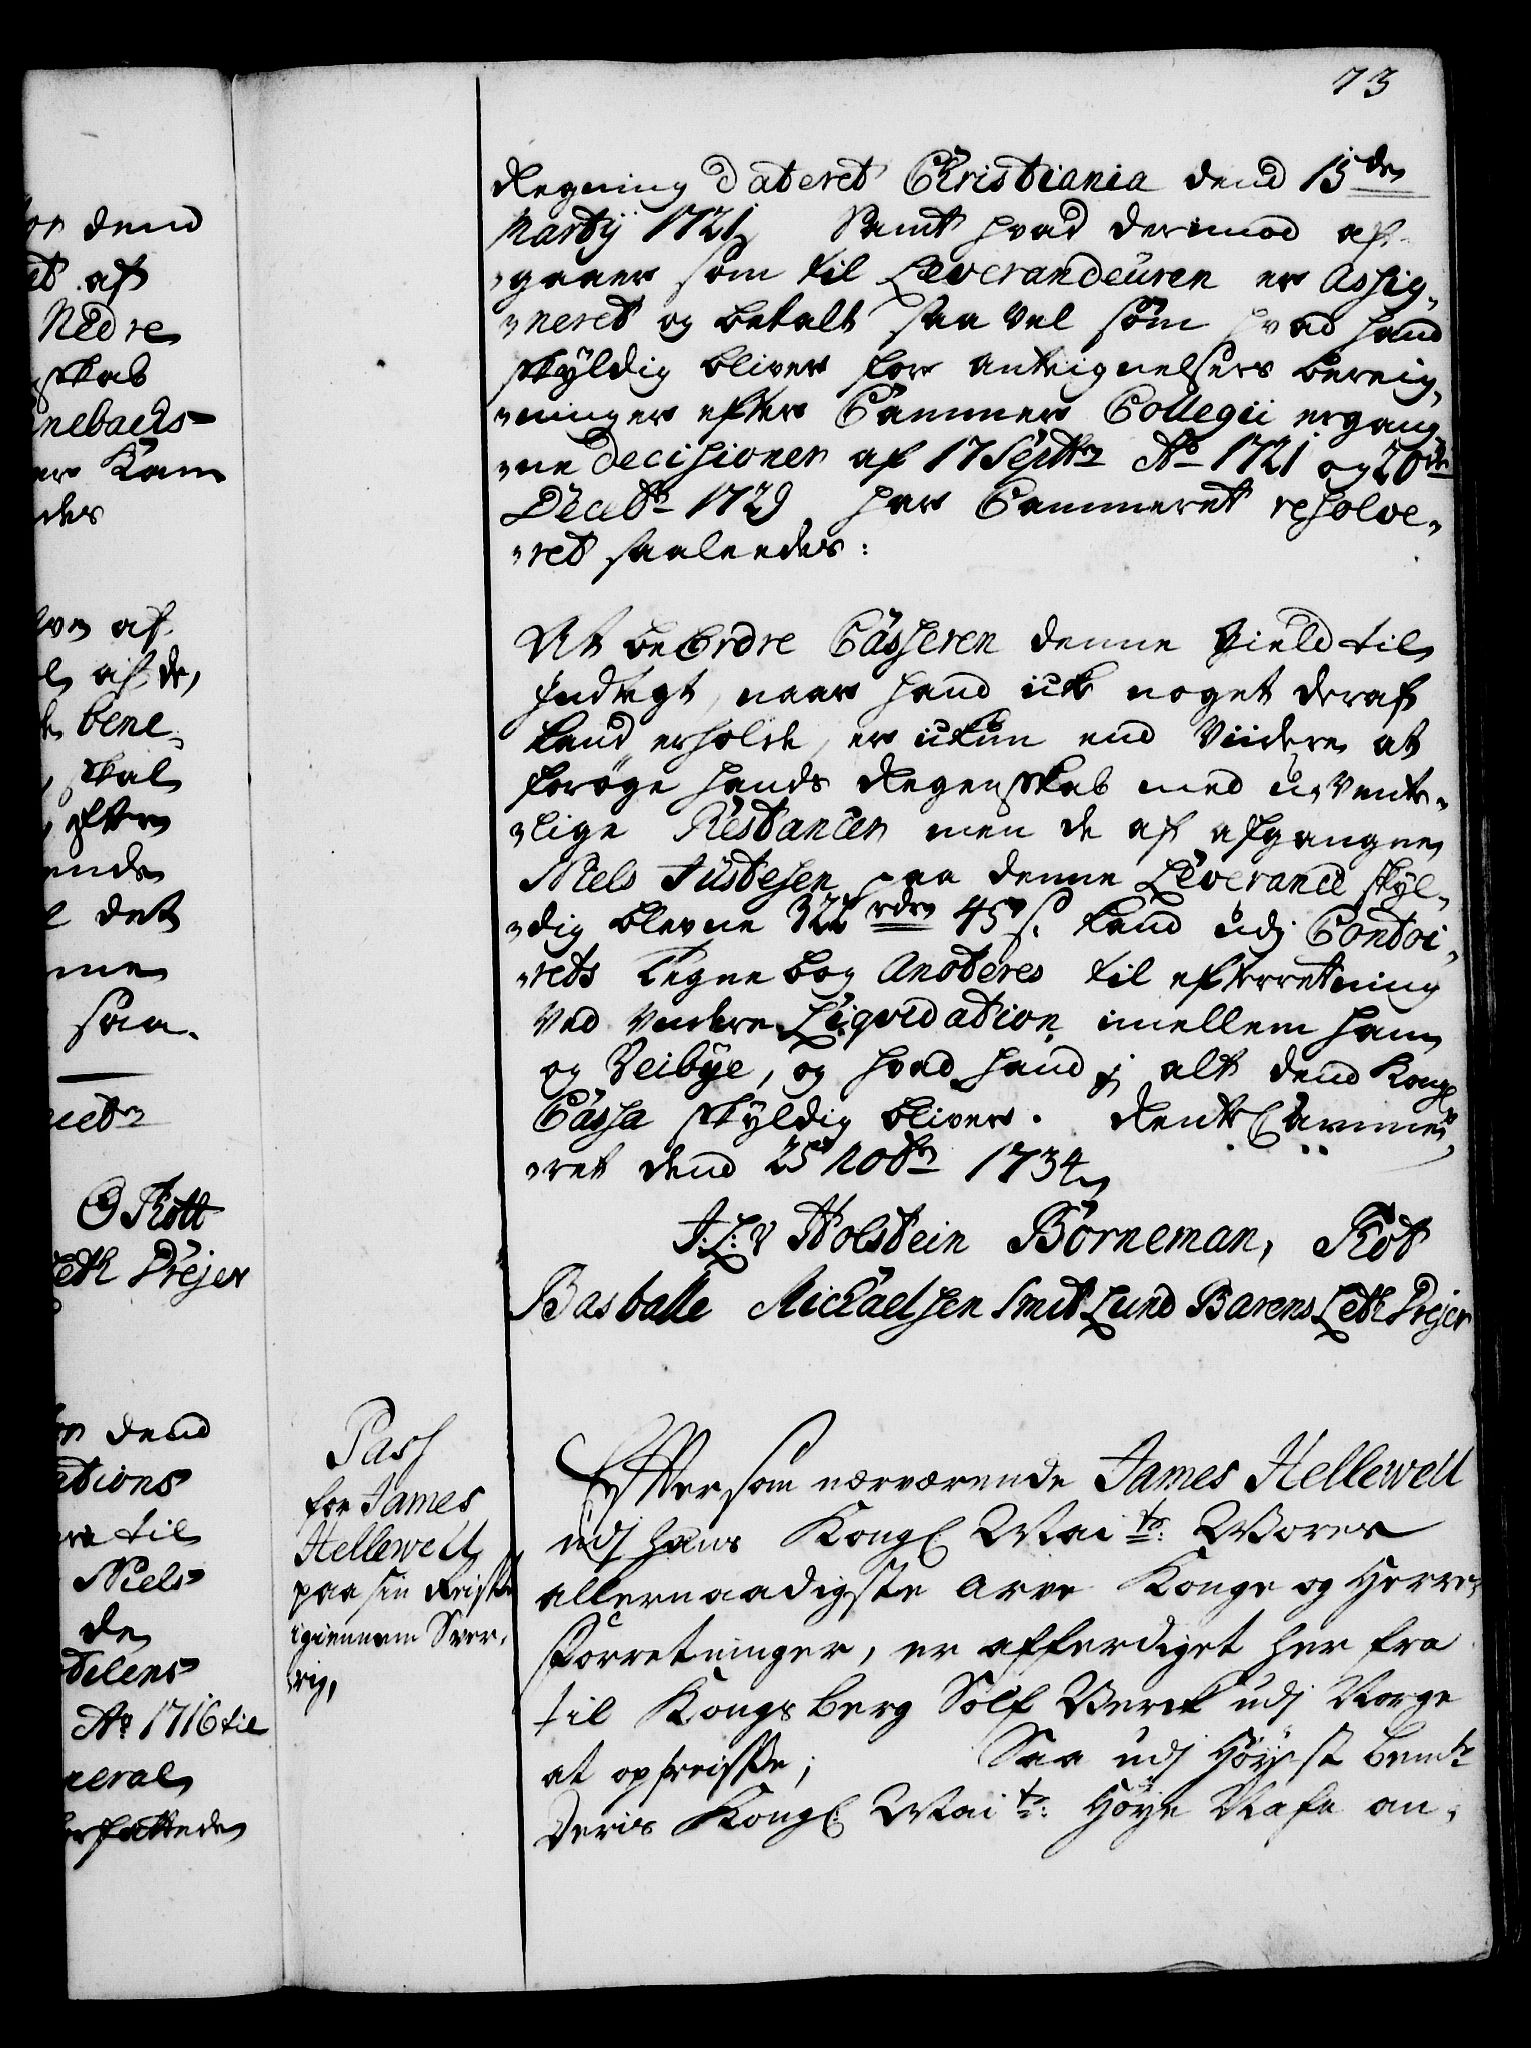 73
Regning dateret Christiania dend 15den
Martij 1721, Samt hvad derimod af-
gaaer som til Leverandeuren er Assig-
neret og betalt saa vel som hvad hand
skyldig bliver for Antegnelsers bereig-
ninger efter Cammer Collegii ergang-
ne Decisioner af 17 Septbr Ao 1721 og 20de
Decebr 1729 har Cammeret resolve-
ret saaleedes:
At beordre Casseren denne Gield til
Indtegt, naar hand icke noget deraf
kand erholde, er ickun end viidere at
forøge hands Regenskab med uvente-
lige Restancer men de af afgangne
Niels Justesen paa denne Leverance skyl-
dig blevne 322 rdr 45 s. kand udj Contoi-
rets Tegnebog Anoteres til efterretning
ved vidre Liqvidation imellem ham
og Veibye, og hvad hand j alt dend Kongl
Cassa skyldig bliver. Rente Camme-
ret dend 25 Nobr 1734
J: L: V Holstein Borneman, Kot
Basballe Michaelsen Smit Lund Barens Leth Drejer
Pass
for James
Hellewell
paa sin Reise
igiennem Sver-
rig,
Eftersom nærværende James Hellewell
udj hans Kongl. Maits: Vores
allernaadigste Arve Konge og Herres
Forretninger, er afferdiget her fra
til Kongsberg Sølf Verck udj Norge
at opreisse; Saa udj Høyst bemte
Deris Kongl: Maits: Høye Nafn an-
or dend
et af
Nedre
skab
nebachs
er Kam
der
ven af
l af de,
bene-
skal
efter
ende
e det
me
saa-
cebr
O Kott
Leth Drejer
or dend
ations
til
Niels
de
telens
Ao 1716 til
neral
erfattede